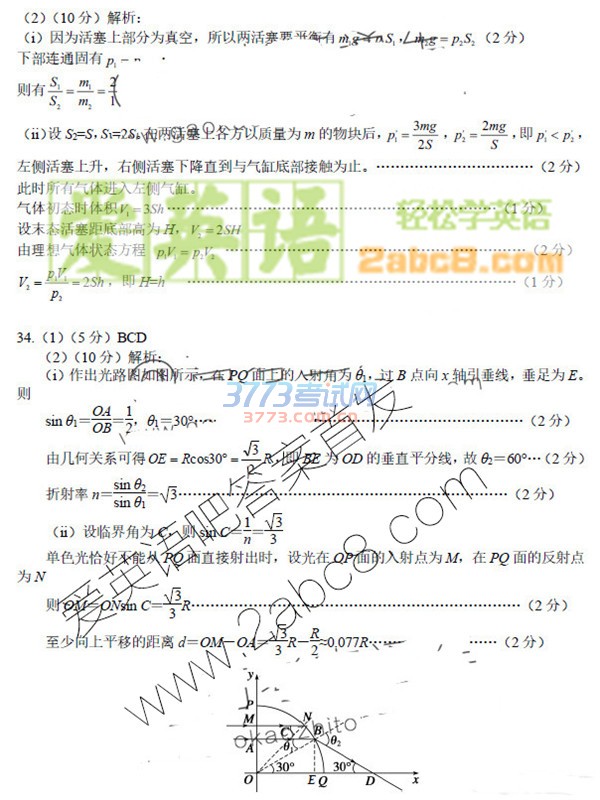 （2）（10分）解析：
（i）因为活塞上部分为真空，所以两活塞要平衡有m₁g＝p₁S₁，m₂g＝p₂S₂（2分）
下部连通固有p₁＝
则有S₁/S₂＝m₁/m₂＝2/1
（ii）设S₂=S，S₁=2S，在两活塞上各方以质量为m的物块后，p₁'＝3mg/2S，p₂'＝2mg/S，即p₁'＜p₂'，
左侧活塞上升，右侧活塞下降直到与气缸底部接触为止。……………………（2分）
此时所有气体进入左侧气缸。
气体初态时体积V₁＝3Sh……………………（1分）
设末态活塞距底部高为H，V₂＝2SH
由理想气体状态方程 p₁V₁＝p₂V₂ ……………………（2分）
V₂＝p₁V₁/p₂＝2Sh，即H=h ……………………（1分）
34.（1）（5分）BCD
（2）（10分）解析：
（i）作出光路图如图所示，在PQ面上的入射角为θ₁，过B点向x轴引垂线，垂足为E。
则
sin θ₁＝OA/OB＝1/2，θ₁＝30°……………………（2分）
由几何关系可得OE＝Rcos30°＝√3/2R，即BE为OD的垂直平分线，故θ₂＝60°…（2分）
折射率n＝sin θ₂/sin θ₁＝√3……………………（2分）
（ii）设临界角为C，则sin C＝1/n＝√3/3
单色光恰好不能从PQ面直接射出时，设光在OP面的入射点为M，在PQ面的反射点
为N
则OM＝ONsin C＝√3/3R……………………（2分）
至少向上平移的距离d＝OM－OA＝√3/3R－R/2≈0.077R…………（2分）
y
P
M
N
C
B
A
θ₁
θ₂
30°
30°
O
E
Q
D
x
爱英语
轻松学英语
2abc8.com
3773考试网
3773.com.cn
爱英语吧答案首发
www.2abc8.com
okaozhito